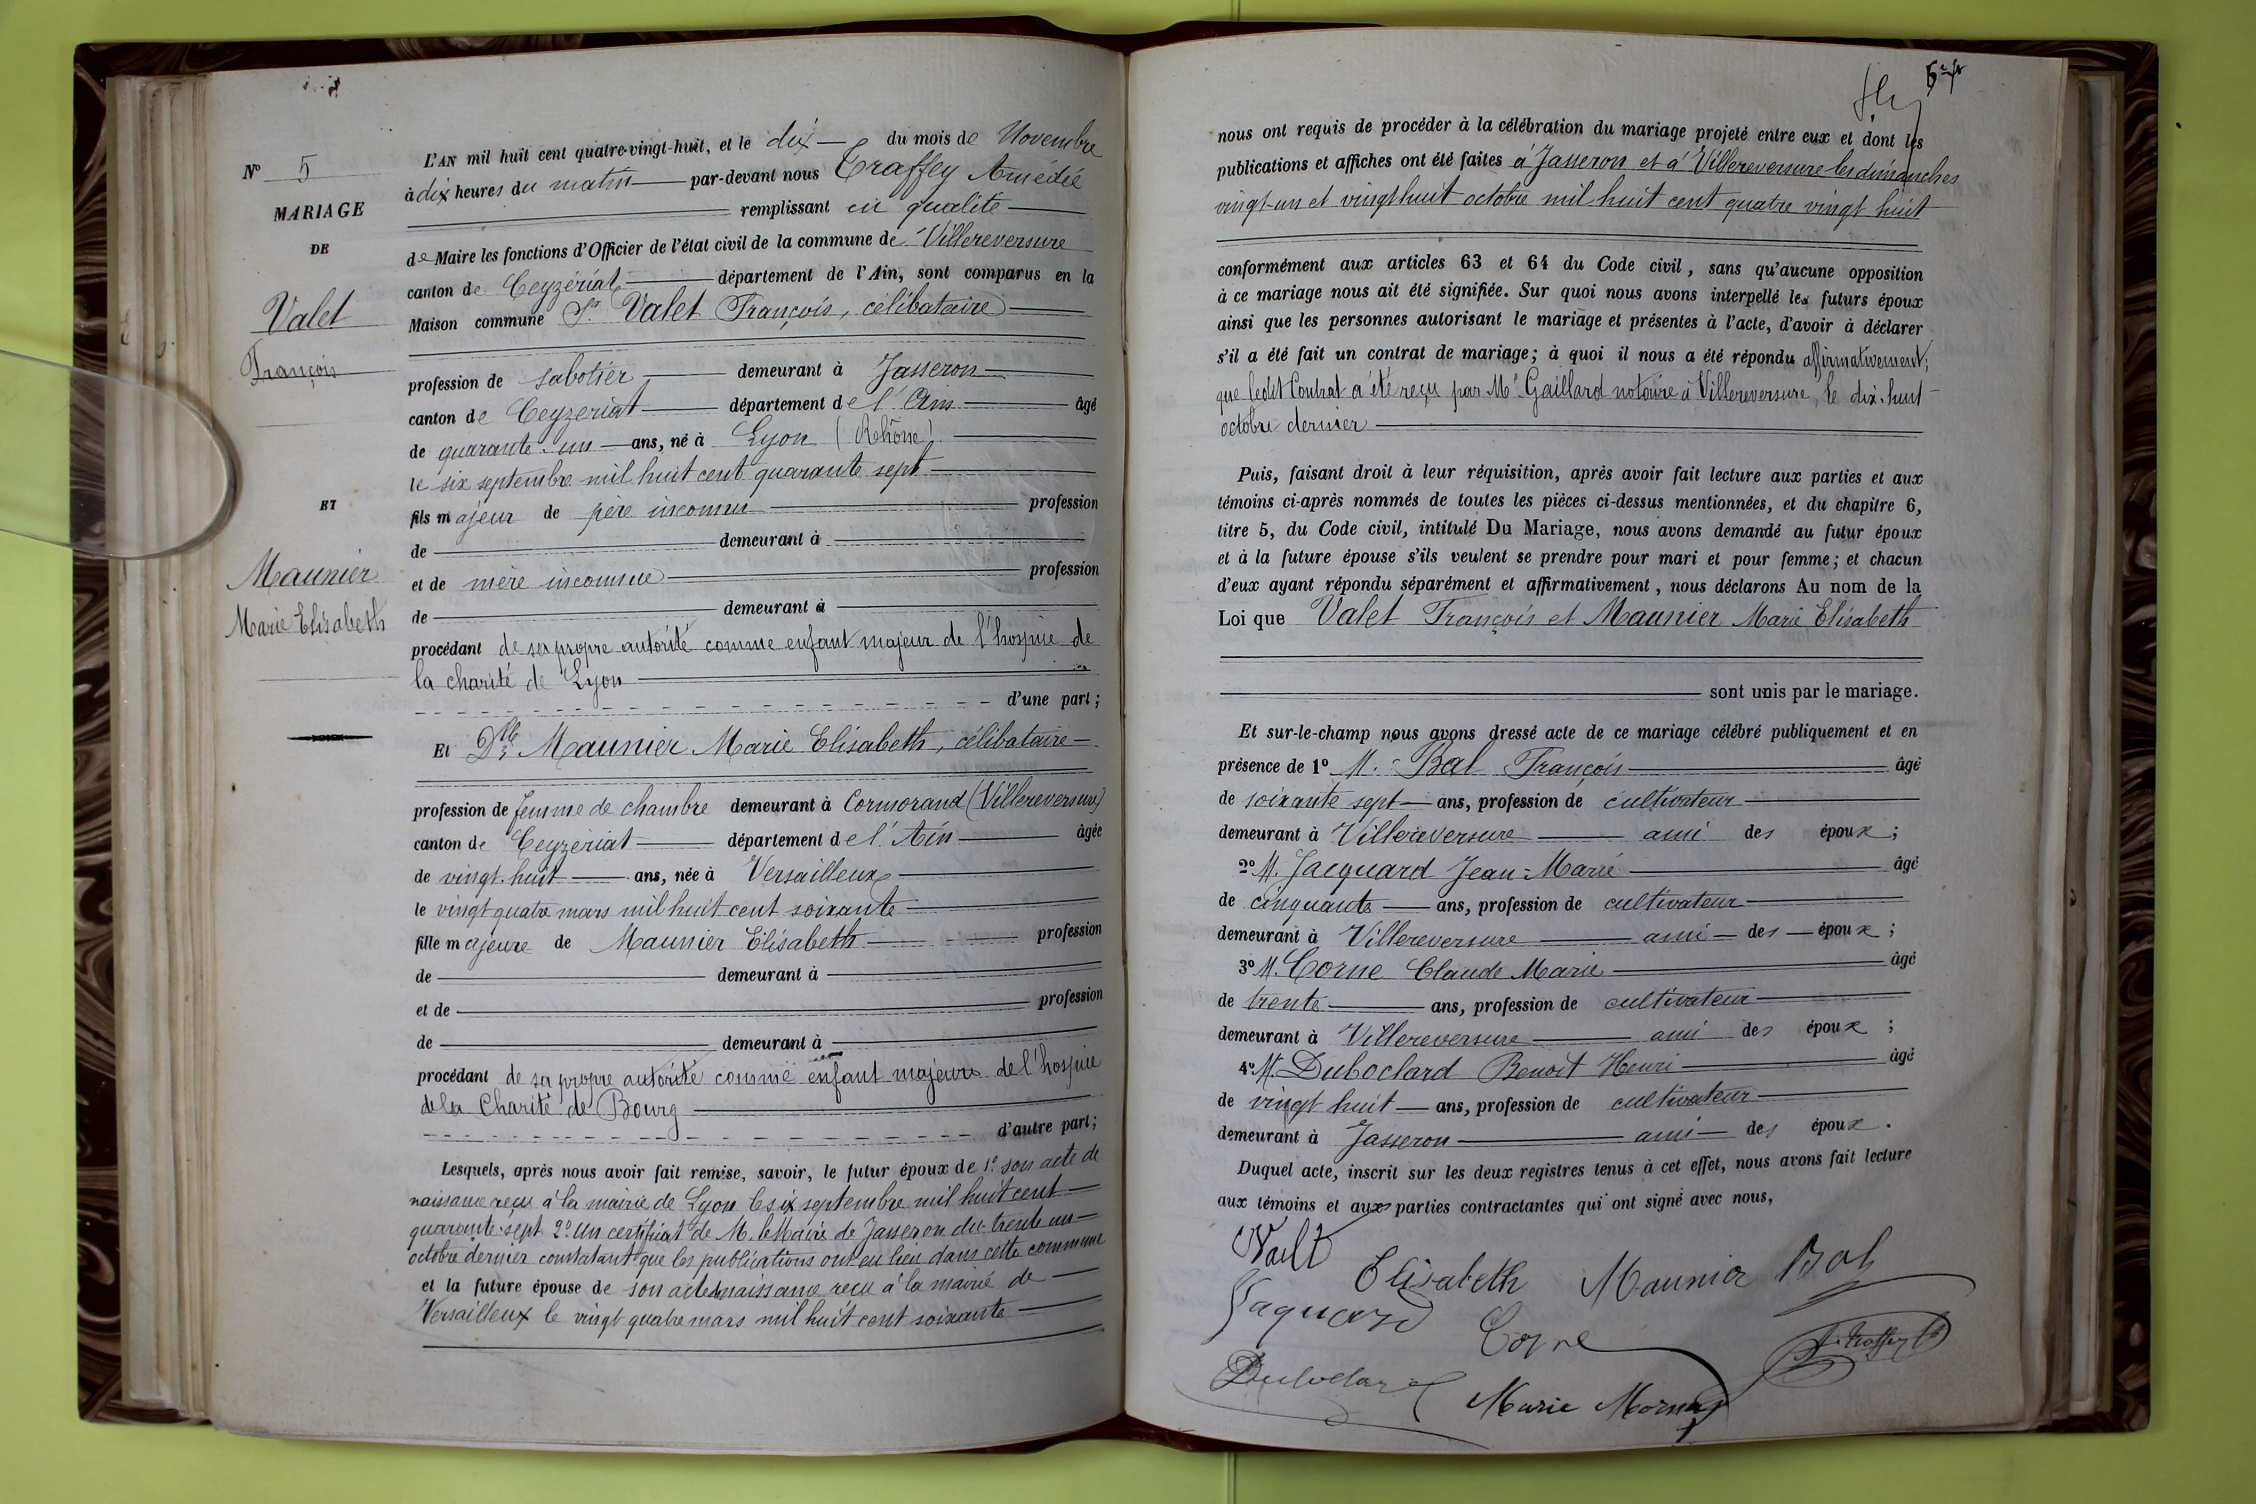 N° 5
MARIAGE
DE
Valet
François
ET
Maunier
Marie Elisabeth
L'AN mil huit cent quatre-vingt-huit, et le dix du mois de Novembre
à dix heures du matin par-devant nous Traffey Amédée
remplissant en qualité
de Maire les fonctions d'Officier de l'état civil de la commune de Villereversure
canton de Ceyzériat département de l'Ain, sont comparus en la
Maison commune Sr. Valet François, célibataire
profession de sabotier demeurant à Jasseron
canton de Ceyzériat département de l'Ain âgé
de quarante-un ans, né à Lyon (Rhône)
le six septembre mil huit cent quarante sept
fils majeur de père inconnu profession
de demeurant à
et de mère inconnue profession
de demeurant à
procédant de sa propre autorité comme enfant majeur de l'hospice de
la charité de Lyon
d'une part;
Et Dlle Maunier Marie Elisabeth, célibataire
profession de femme de chambre demeurant à Cormorand (Villereversure)
canton de Ceyzériat département de l'Ain âgée
de vingt-huit ans, née à Versailleux
le vingt quatre mars mil huit cent soixante
fille majeure de Maunier Elisabeth profession
de demeurant à
et de profession
de demeurant à
procédant de sa propre autorité comme enfant majeure de l'hospice
de la Charité de Bourg
d'autre part;
Lesquels, après nous avoir fait remise, savoir, le futur époux de 1° son acte de
naissance reçu à la mairie de Lyon le six septembre mil huit cent
quarante-sept 2° un certificat de M. le Maire de Jasseron du trente un
octobre dernier constatant que les publications ont eu lieu dans cette commune
et la future épouse de son acte de naissance reçu à la mairie de
Versailleux le vingt quatre mars mil huit cent soixante
nous ont requis de procéder à la célébration du mariage projeté entre eux et dont les
publications et affiches ont été faites à Jasseron et à Villereversure les dimanches
vingt-un et vingt huit octobre mil huit cent quatre vingt huit
conformément aux articles 63 et 64 du Code civil, sans qu'aucune opposition
à ce mariage nous ait été signifiée. Sur quoi nous avons interpellé les futurs époux
ainsi que les personnes autorisant le mariage et présentes à l'acte, d'avoir à déclarer
s'il a été fait un contrat de mariage; à quoi il nous a été répondu affirmativement;
que ledit Contrat a été reçu par Me Gaillard notaire à Villereversure, le dix-huit
octobre dernier
Puis, faisant droit à leur réquisition, après avoir fait lecture aux parties et aux
témoins ci-après nommés de toutes les pièces ci-dessus mentionnées, et du chapitre 6,
titre 5, du Code civil, intitulé Du Mariage, nous avons demandé au futur époux
et à la future épouse s'ils veulent se prendre pour mari et pour femme; et chacun
d'eux ayant répondu séparément et affirmativement, nous déclarons Au nom de la
Loi que Valet François et Maunier Marie Elisabeth
sont unis par le mariage.
Et sur-le-champ nous avons dressé acte de ce mariage célébré publiquement et en
présence de 1° M. Bal François âgé
de soixante sept ans, profession de cultivateur
demeurant à Villereversure ami des époux;
2° M. Jacquard Jean-Marie âgé
de cinquante ans, profession de cultivateur
demeurant à Villereversure ami des époux;
3° M. Corne Claude Marie âgé
de trente ans, profession de cultivateur
demeurant à Villereversure ami des époux;
4° M. Duboclard Benoit Henri âgé
de vingt huit ans, profession de cultivateur
demeurant à Jasseron ami des époux.
Duquel acte, inscrit sur les deux registres tenus à cet effet, nous avons fait lecture
aux témoins et aux parties contractantes qui ont signé avec nous,
Elisabeth Maunier Bal
Jaquard Corne A. Traffey
Duboclard Marie Mornay